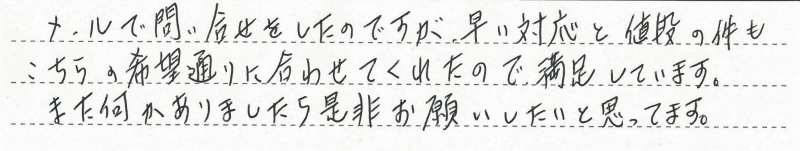 メールで問い合せをしたのですが、早い対応と値段の件も
こちらの希望通りに合わせてくれたので、満足しています。
また何かありましたら是非お願いしたいと思ってます。